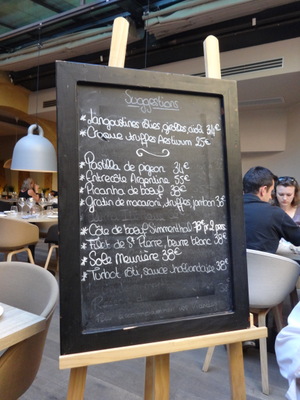 Suggestions
* Langoustines rôties, zestes, aïoli 34€
* Croque truffes Aestivum 25€
* Pastilla de pigeon 34€
* Entrecôte Argentine 55€
* Picanha de boeuf 38€
* Gratin de macaroni, truffes, jambon 35€
* Côte de boeuf Simmenthal 98€ 2 pers
* Filet de St Pierre, beurre blanc 38€
* Sole Meunière 38€
* Turbot rôti, sauce hollandaise 38€